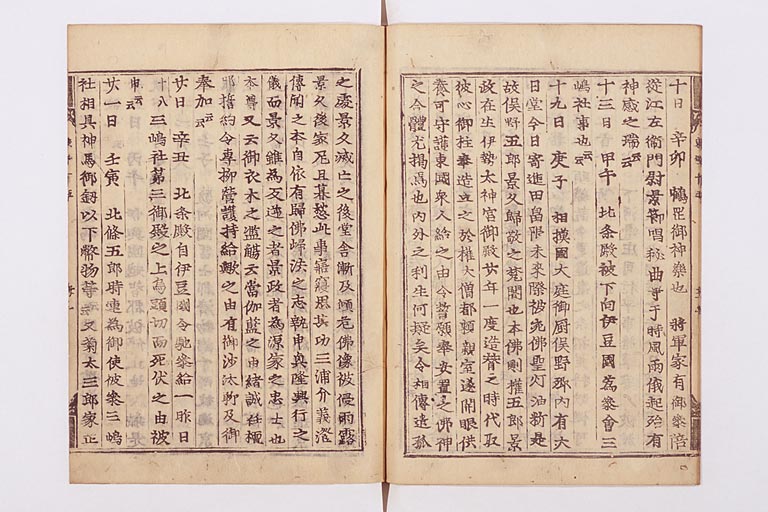 十日 辛卯 鶴岳御神樂也 將軍家有御參陪
從江右衛門尉景節唱秘曲于于時風雨儀起殆有
神感之瑞云云
十三日 甲午 北条殿被下向伊豆國為參會三
嶋社事也云云
十九日 庚子 相摸國大庭御厨俣野郷内有大
日堂今日寄進田畠限未來際被宛佛聖灯油新是
故俣野五郎景久歸敬之梵閣也本佛則權五郎景
政在生伊勢太神宮御殿廿年一度造替之時代取
彼心御柱奉造立之於權大僧都頼親室遂開眼供
養可守護東國衆人給之由令誓願奉安置之佛神
之合體尤揭焉也内外之利生何疑矣令相傳遺孤
之處景久滅亡之後堂舎漸及傾危佛像被侵雨露
景久後家尼且暮愁此事寤寐思其功三浦介義澄
傳聞之本自依有歸佛歸法之志執申興隆興行之
儀而景久雖為反逆之者景政者為源家之忠士也
本尊又云御衣木之濫觴云當伽藍之由緒誠在極
耶舊約令專柳營護持給歟之由有御沙汰漸及御
奉加云云
廿日 辛丑 北条殿自伊豆國令馳參給一昨日
十八三嶋社第三御殿之上烏頭切而死伏之由被
申云云
廿一日 壬寅 北條五郎時連為御使彼參三嶋
社相具神馬御釼以下幣物等云又菊太三郎家正